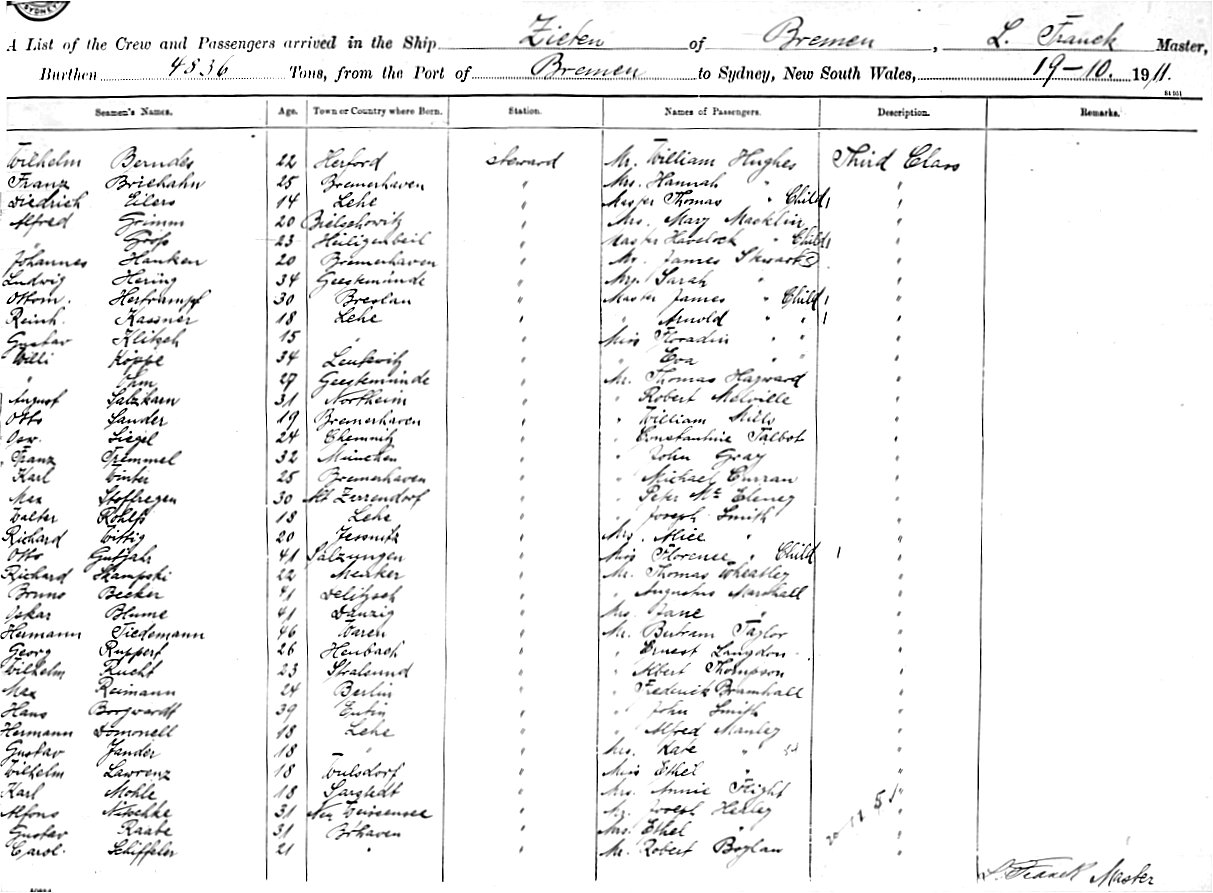 SYDNEY
A List of the Crew and Passengers arrived in the Ship Zieten of Bremen, L. Franck Master,
Burthen 4836 Tons, from the Port of Bremen to Sydney, New South Wales, 19-10. 1911.
Seamen's Names. Age. Town or Country where Born. Station. Names of Passengers. Description. Remarks.
Wilhelm Berndes 22 Herford steward Mr. William Hughes Third Class
Franz Briehahn 25 Bremerhaven " Mrs. Hannah " "
Diedrich Eilers 14 Lehe " Master Thomas " Child 1 "
Alfred Grimm 20 Bielschowitz " Mrs. Mary Macklin "
" Groß 23 Heiligenbeil " Master Havelock " Child 1 "
Johannes Hanken 20 Bremerhaven " Mr. James Stewart "
Ludwig Hering 34 Geestemünde " Mrs. Sarah " "
Ottom. Hertrampf 30 Breslau " Master James " Child 1 "
Reinh. Kassner 18 Lehe " " Arnold " " 1 "
Gustav Klitzsch 15 " " Miss " " "
Willi Köppe 34 " " Eva " " "
" 27 Geestemünde " Mr. Thomas Hayward "
August Salzkorn 31 Northeim " " Robert Melville "
Otto Sander 19 Bremerhaven " " William Mills "
Osw. Siegel 24 Chemnitz " " Constantine Talbot "
Franz Tremmel 32 München " " John Gray "
Karl Winter 25 Bremerhaven " " Michael Curran "
Max Stoffregen 30 Alt Zerrendorf " " Peter Mc Eleney "
Walter Rohlfs 18 Lehe " " Joseph Smith "
Richard Wittig 20 Jessnitz " Mrs. Alice " "
Otto Gutjahr 41 Salzungen " Miss Florence " Child 1 "
Richard Skampski 22 " Mr. Thomas Wheatley "
Bruno Becker 41 Delitzsch " " Augustus Marshall "
Oskar Blume 41 Danzig " Mrs. Jane " "
Hermann Tiedemann 46 Waren " Mr. Bertram Taylor "
Georg Ruppert 26 Heubach " " Ernest Langdon "
Wilhelm Rucht 23 Stralsund " " Albert Thompson "
Max Reimann 24 Berlin " " Frederick Bramhall "
Hans Borgwardt 39 Eutin " " John Smith "
Hermann Domonell 18 Lehe " " Alfred Manley "
Gustav Jander 18 " " Mrs. Kate " "
Wilhelm Lawrenz 18 Wulsdorf " Miss Ethel " "
Karl Mohle 18 Sarstedt " Mrs. Annie Flight "
Alfons Nitschke 31 Neu Weissensee " Mr. Joseph Harley "
Gustav Raabe 31 Brhaven " Mrs. Ethel " "
Carol. Schiffeler 21 " " Mr. Robert Boylan "
L. Franck Master